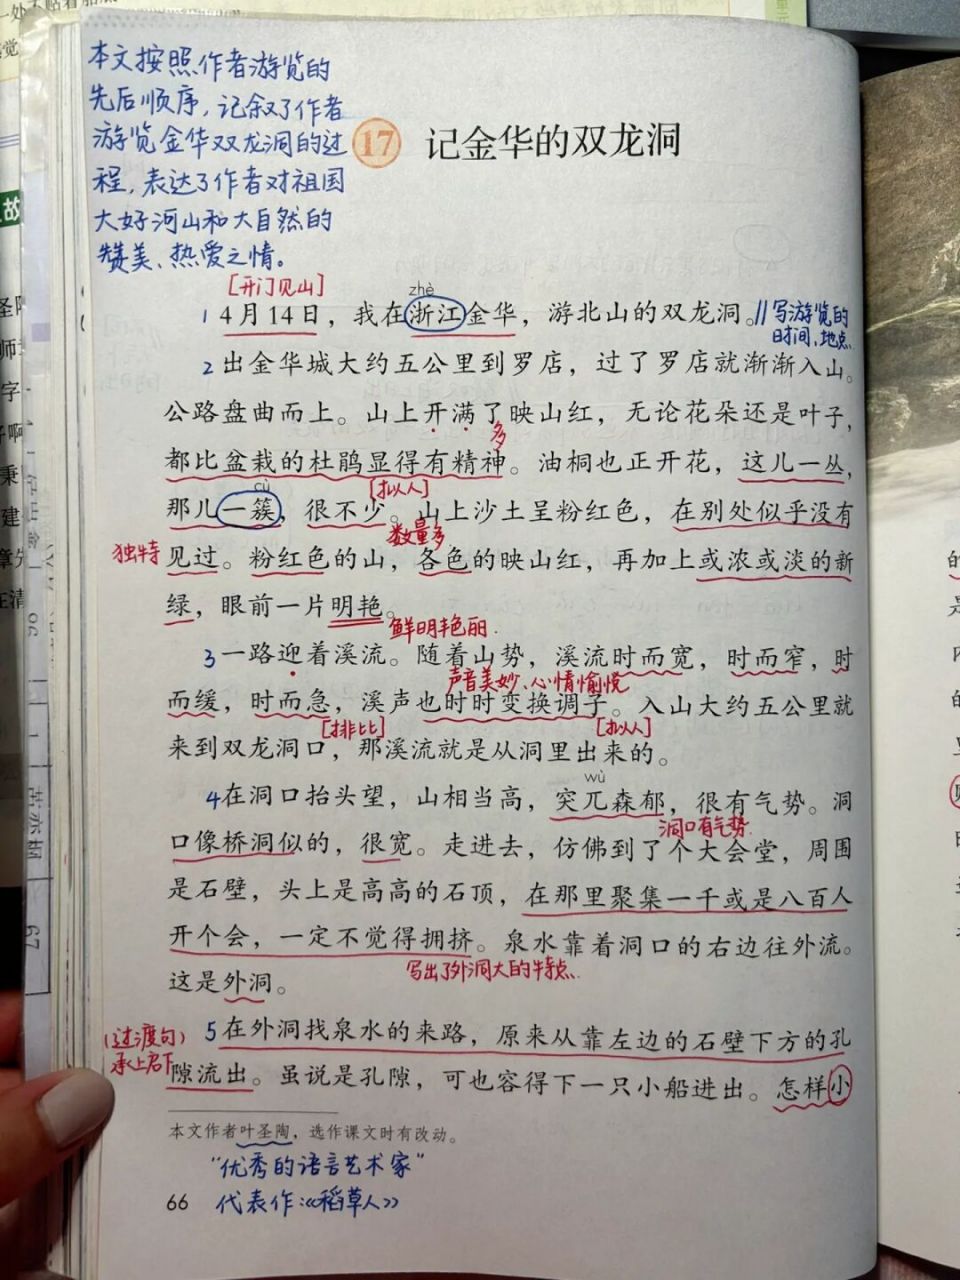 本文按照作者游览的
先后顺序,记叙了作者
游览金华双龙洞的过
程,表达了作者对祖国
大好河山和大自然的
赞美、热爱之情。
17 记金华的双龙洞
[开门见山]
zhè
1 4月14日，我在浙江金华，游北山的双龙洞。//写游览的
时间、地点
2 出金华城大约五公里到罗店，过了罗店就渐渐入山。
公路盘曲而上。山上开满了映山红，无论花朵还是叶子，
多
都比盆栽的杜鹃显得有精神。油桐也正开花，这儿一丛，
cù
[拟人]
那儿一簇，很不少。山上沙土呈粉红色，在别处似乎没有
数量多
独特 见过。粉红色的山，各色的映山红，再加上或浓或淡的新
绿，眼前一片明艳。
鲜明艳丽.
3 一路迎着溪流。随着山势，溪流时而宽，时而窄，时
声音美妙、心情愉悦
而缓，时而急，溪声也时时变换调子。入山大约五公里就
[排比] [拟人]
来到双龙洞口，那溪流就是从洞里出来的。
wù
4 在洞口抬头望，山相当高，突兀森郁，很有气势。洞
洞口有气势.
口像桥洞似的，很宽。走进去，仿佛到了个大会堂，周围
是石壁，头上是高高的石顶，在那里聚集一千或是八百人
开个会，一定不觉得拥挤。泉水靠着洞口的右边往外流。
写出了外洞大的特点.
这是外洞。
(过渡句) 5 在外洞找泉水的来路，原来从靠左边的石壁下方的孔
承上启下 隙流出。虽说是孔隙，可也容得下一只小船进出。怎样小
本文作者叶圣陶，选作课文时有改动。
“优秀的语言艺术家”
66 代表作:《稻草人》